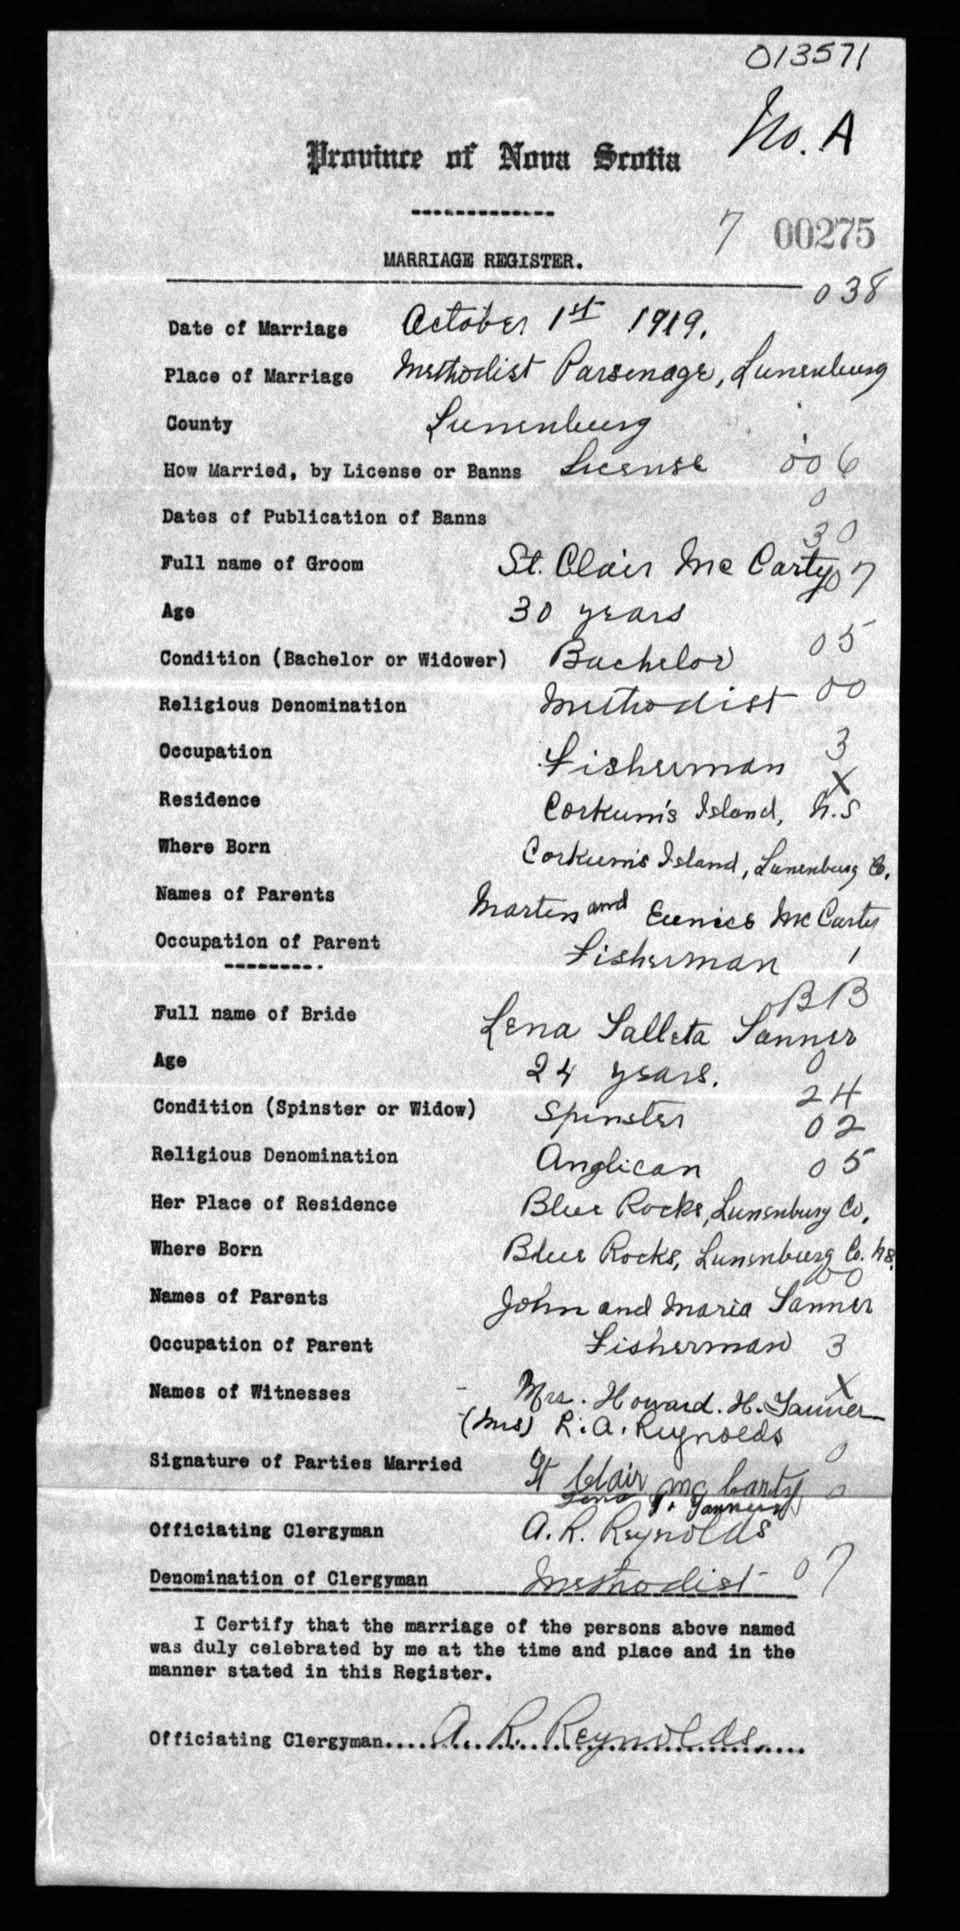 013571
No. A
Province of Nova Scotia
7 00275
MARRIAGE REGISTER.
038
Date of Marriage October 1st 1919.
Place of Marriage Methodist Parsonage, Lunenburg
County Lunenburg
How Married, by License or Banns License 006
0
Dates of Publication of Banns
30
Full name of Groom St. Clair Mc Carty 07
Age 30 years
Condition (Bachelor or Widower) Bachelor 05
Religious Denomination Methodist 00
Occupation Fisherman 3
X
Residence Corkum's Island, N.S
Where Born Corkum's Island, Lunenburg Co.
Names of Parents Martin and Eunice Mc Carty
Occupation of Parent Fisherman 1
BB
Full name of Bride Lena Salleta Tanner
0
Age 24 years. 24
Condition (Spinster or Widow) Spinster 02
Religious Denomination Anglican 05
Her Place of Residence Blue Rocks, Lunenburg Co.
Where Born Blue Rocks, Lunenburg Co. N.S.
00
Names of Parents John and Maria Tanner
Occupation of Parent Fisherman 3
X
Names of Witnesses - Mrs. Howard. H. Tanner
(Mrs) R. A. Reynolds
0
Signature of Parties Married St Clair Mc Carty 0
Lena Tanner
Officiating Clergyman A. R. Reynolds
Denomination of Clergyman Methodist 07
I Certify that the marriage of the persons above named
was duly celebrated by me at the time and place and in the
manner stated in this Register.
Officiating Clergyman....A. R. Reynolds....